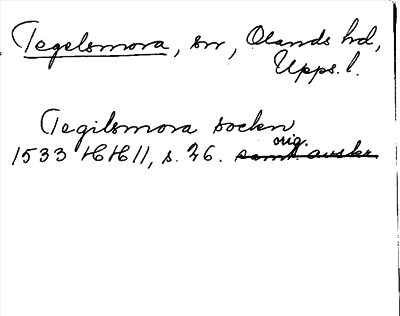 Tegelsmora, sn, Olands hd,
Upps. l.
Tegilsmora sockn
orig.
1533 HH 11, s. 26. samt. avskr